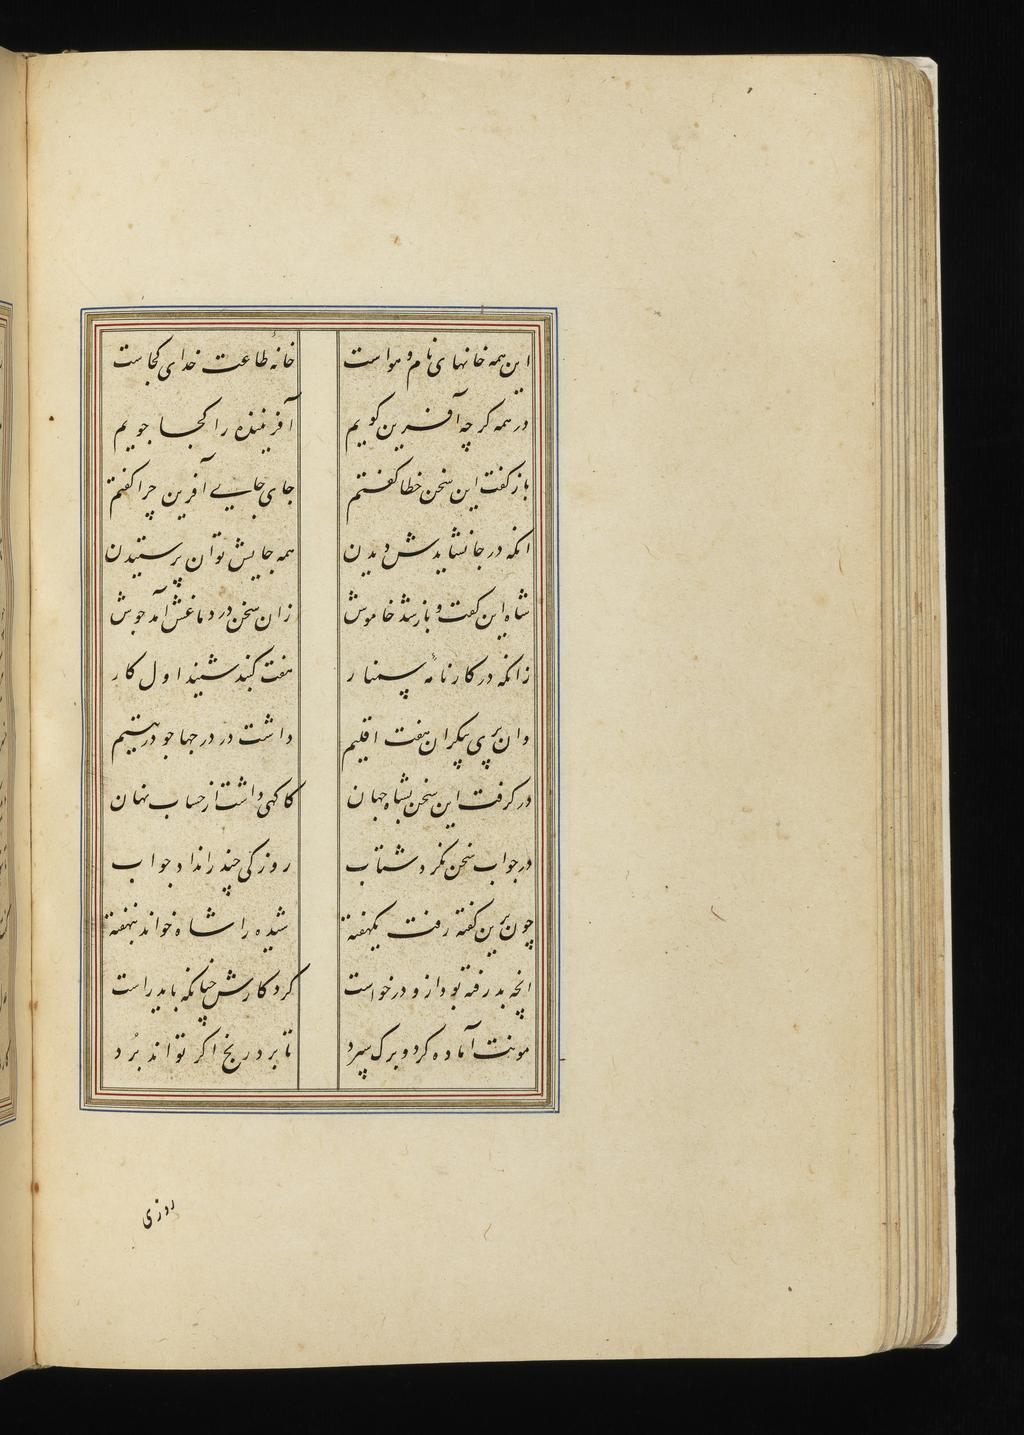 این همه خانهای نام و هواست خانهٔ طاعت خدای کجاست
در همه گرچه آفرین گویم آفریننده را کجا جویم
باز گفت این سخن خطا گفتم جای جایی آفرین چرا گفتم
انکه در جا نشایدش دیدن همه جایش توان پرستیدن
شاه این گفت و باز شد خاموش زان سخن در دماغش آمد جوش
زانکه در کارنامهٔ سمنار هفت گنبد شنید اول کار
وان پری پیکران هفت اقلیم داشت در درجها چو در یتیم
در گرفت این سخن بشاه جهان کاگهی داشت از حساب نهان
در جواب سخن نکرد شتاب روزکی چند را نداد جواب
چون برین گفته رفت یکهفته شیده را شاه خواند بنهفته
انچه پذرفته بود ازو درخواست کرد کارش چنانکه باید راست
مونت آماده کرد و برگ سپرد تا برد رنج اگر تواند برد
روزی